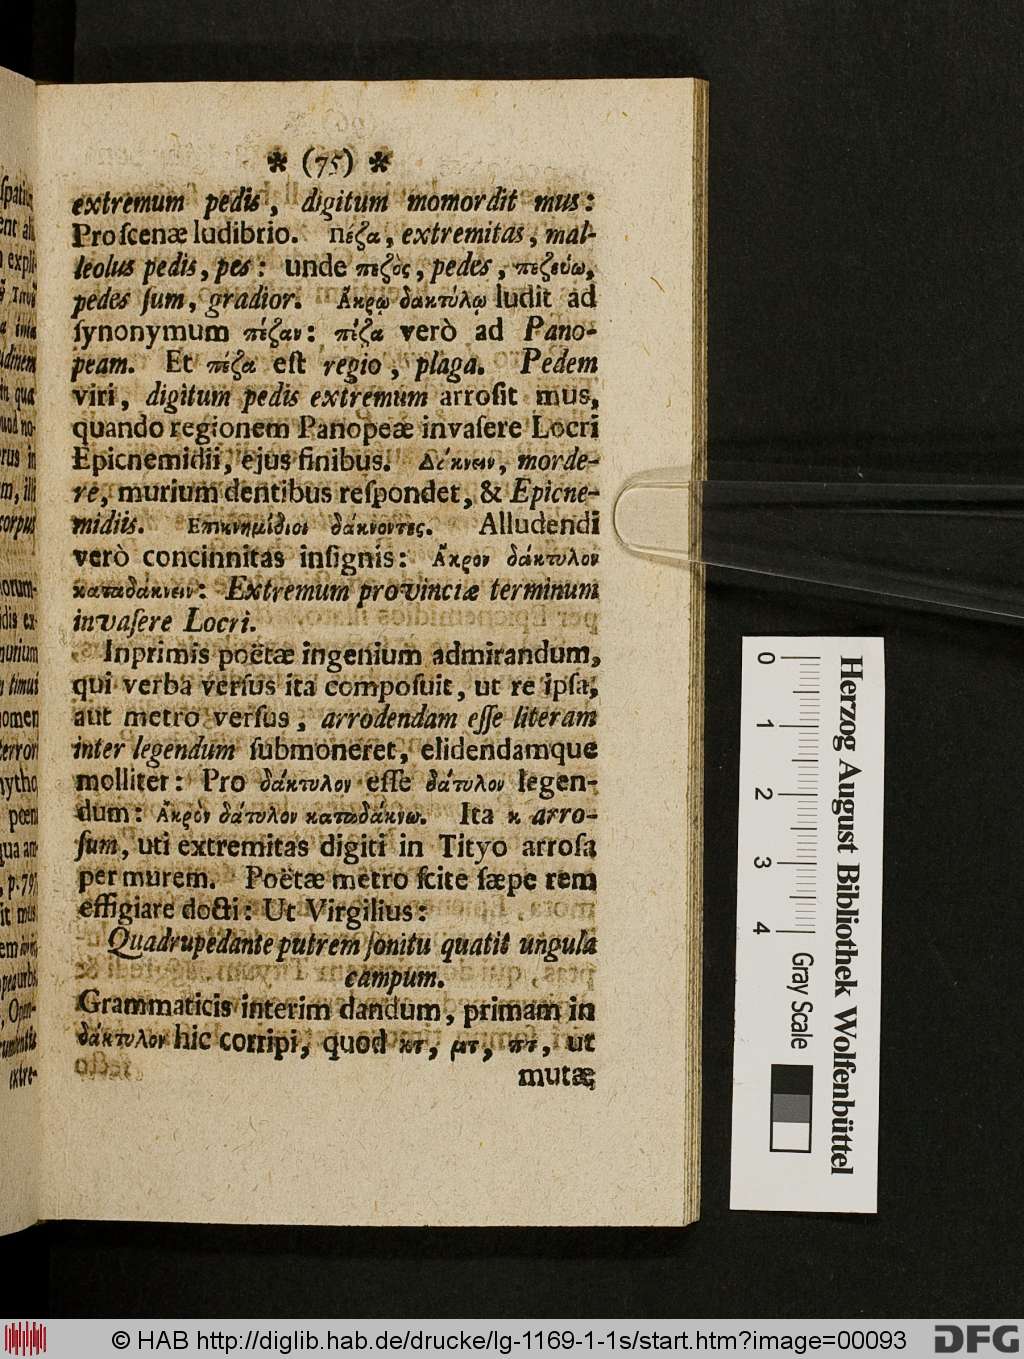 ✱ (75) ✱
extremum pedis, digitum momordit mus:
Pro ſcenæ ludibrio. πέζα, extremitas, mal-
leolus pedis, pes: unde πεζὸς, pedes, πεζεύω,
pedes ſum, gradior. Ἄκρῳ δακτύλῳ ludit ad
ſynonymum πέζαν: πέζα verò ad Pano-
peam. Et πέζα eſt regio, plaga. Pedem
viri, digitum pedis extremum arroſit mus,
quando regionem Panopeæ invaſere Locri
Epicnemidii, ejus finibus. Δάκνειν, morde-
re, murium dentibus reſpondet, & Epicne-
midiis. Επικνημίδιοι δάκνοντες. Alludendi
verò concinnitas inſignis: Ἄκρον δάκτυλον
καταδάκνειν: Extremum provinciæ terminum
invaſere Locri.
Inprimis poëtæ ingenium admirandum,
qui verba verſus ita compoſuit, ut re ipſa,
aut metro verſus, arrodendam eſſe literam
inter legendum ſubmoneret, elidendamque
molliter: Pro δάκτυλον eſſe δάτυλον legen-
dum: Ἄκρὸν δάτυλον καταδάκνω. Ita κ arro-
ſum, uti extremitas digiti in Tityo arroſa
per murem. Poëtæ metro ſcite ſæpe rem
effigiare docti: Ut Virgilius:
Quadrupedante putrem ſonitu quatit ungula
campum.
Grammaticis interim dandum, primam in
δάκτυλον hic corripi, quod κτ, μτ, πτ, ut
mutæ
Herzog August Bibliothek Wolfenbüttel
0 1 2 3 4 Gray Scale
© HAB http://diglib.hab.de/drucke/lg-1169-1-1s/start.htm?image=00093
DFG